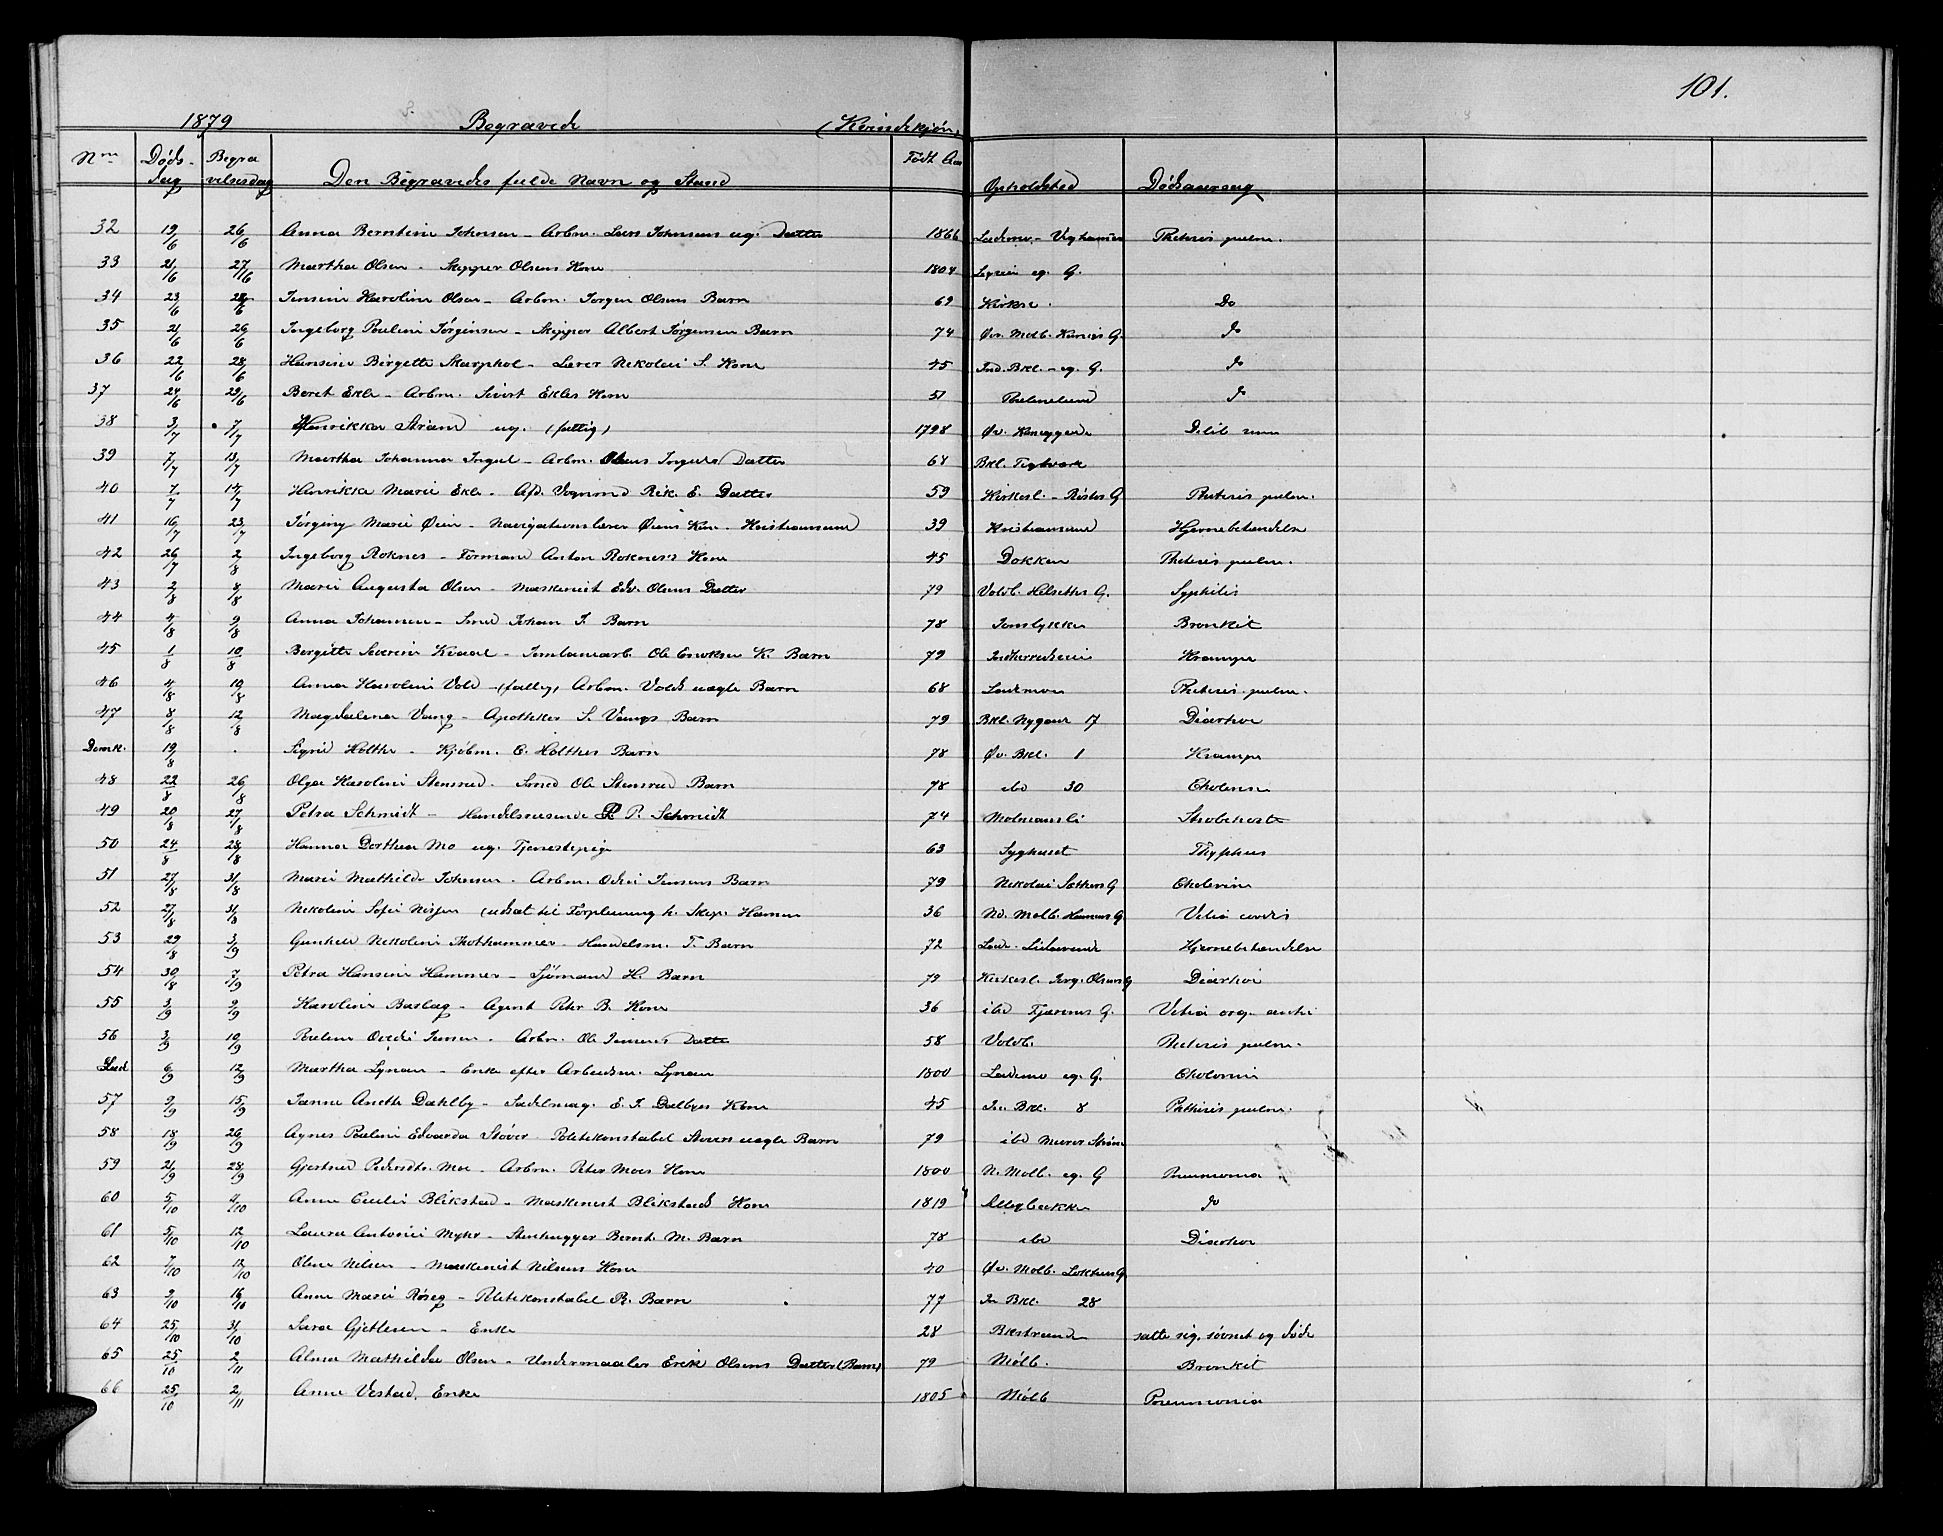 101.
1879 Begravede (Kvindekjøn)
Nm Døds- dag Begra velsesdag Den Begravedes fulde Navn og Stand Født Aar Opholdsted Dødsaarsag
32 19/6 26/6 Anna Berntine Johnsen - Arbm. Lars Johnsens ug. Datter 1866 Lademo - Phtisis pulm.
33 21/6 27/6 Martha Olsen - Skipper Olsens Kone 1804 eg. G.
34 23/6 28/6 Jensine Karoline Olsen - Arbm. Jørgen Olsens Barn 69 Do
35 21/6 26/6 Ingeborg Pauline Jørgensen - Skipper Albert Jørgensen Barn 74 Øv. Molb. G. do
36 22/6 28/6 Hansine Birgette Skarphol - Lærer Nikolai S. Kone 45 Ind. Bkl. - eg. G. do
37 24/6 29/6 Beret Ekle - Arbm. Sivert Ekles Kone 51 do
38 3/7 7/7 Henrikka Strand ug. (fattig) 1798 Øv.
39 7/7 13/7 Martha Johanna - Arbm. Datter 64 Bkl. Teglværk
40 7/7 14/7 Henrikka Marie Ekle - Afd. Sogned Rik. E. Datter 59 Kirkesl. - G Phtisis pulm.
41 16/7 23/7 Marie Øien - Navigationslærer Øiens Kone. Kristiansund 39 Kristiansund Hjernebetændelse
42 26/7 2/8 Ingeborg Roknes - Formand Anton Roknes's Kone 45 Dokken Phtisis pulm.
43 2/8 8/8 Marie Augusta Olsen - Maskinist Edv. Olsens Datter 79 Voldb. Helsethes G. Syphilis
44 4/8 9/8 Anna Johansen - Smed Johan J. Barn 78 Bronkit
45 1/8 10/8 Bergitte Severine Kvaal - Jernbanearb. Ole K. Barn 79 Krampe
46 4/8 10/8 Anna Karoline Vold - (fattig) Arbm. Volds uægte Barn 68 Lademoen Phtisis pulm.
47 8/8 12/8 Magdalena Vang - Apotheker S. Vangs Barn 79 Bkl. Nygade 17 Diarrhoe
Domk. 19/8 . Sigrid Holthe - Kjøbm. C. Holthes Barn 78 Øv. Bkl. 1 Krampe
48 22/8 26/8 Olga Karoline Stensrud - Smed Ole Stensrud Barn 78 ibd 30 Cholerine
49 20/8 27/8 Petra Schmidt - Handelsreisende P. P. Schmidt 74 Strubehoste
50 24/8 28/8 Hanna Dorthea Mo ug. Tjenestepige 63 Sygehuset Thyphus
51 27/8 31/8 Marie Mathilde Johnsen - Arbm. Jensens Barn 79 Nikolai Sæthers G Cholerine
52 27/8 31/8 Nikoline Sofie (udsat til Forpleining h. Skip. Hansen 36 Nd. Molb. Hansens G. Vitia cordis
53 29/8 3/9 Gunhild Nikoline Thothammer - Handelsm. T. Barn 72 Lade. Hjernebetændelse
54 30/8 7/9 Petra Hansine Hammer - Sjømand H. Barn 79 Kirkesl. Jørg. Olsens G Diarrhoe
55 3/9 9/9 Karoline - Agent Peter B. Kone 36 ibd G. Vitia org.
56 3/9 10/9 Pauline Jensen - Arbm. Ole Jensens Datter 58 Voldb. Phtisis pulm.
Lad 6/9 12/9 Martha Lynum - Enke efter Arbeidsm. Lynum 1800 Lademo eg. G. Cholerine
57 9/9 15/9 Janne Anette Dahlby - Sadelmag. E. J. Dalbyes Kone 45 In. Bkl. 8 Phthisis pulm.
58 18/9 26/9 Agnes Pauline Edvarda Støver - Politikonstabel Støvers uægte Barn 79 ibd Murer
59 21/9 28/9 Gjertrud Pedersdtr. Moe - Arbm. Peter Moes Kone 1800 N. Molb. eg. G Pneumonia
60 5/10 4/10 Anne Cecilie Blikstad - Maskinist Blikstads Kone 1819 do
61 5/10 12/10 Laura Antonie Myhr - Stenhugger Bernt M. Barn 78 ibd Diarrhoe
62 7/10 12/10 Oline Nilsen - Maskinist Nilsens Kone 40 Øv. Molb. G
63 9/10 16/10 Anne Marie Røseg - Politikonstabel R. Barn 77 In Bkl. 28
64 25/10 31/10 Sara Gjetlesen - Enke 28 Bkstrande satte sig, sovnet og døde
65 25/10 2/11 Alma Mathilde Olsen - Undermaaler Erik Olsens Datter (Barn) 79 Mølb. Bronkit
66 25/10 2/11 Anne Vestad, Enke 1805 Mølb Pneumonia